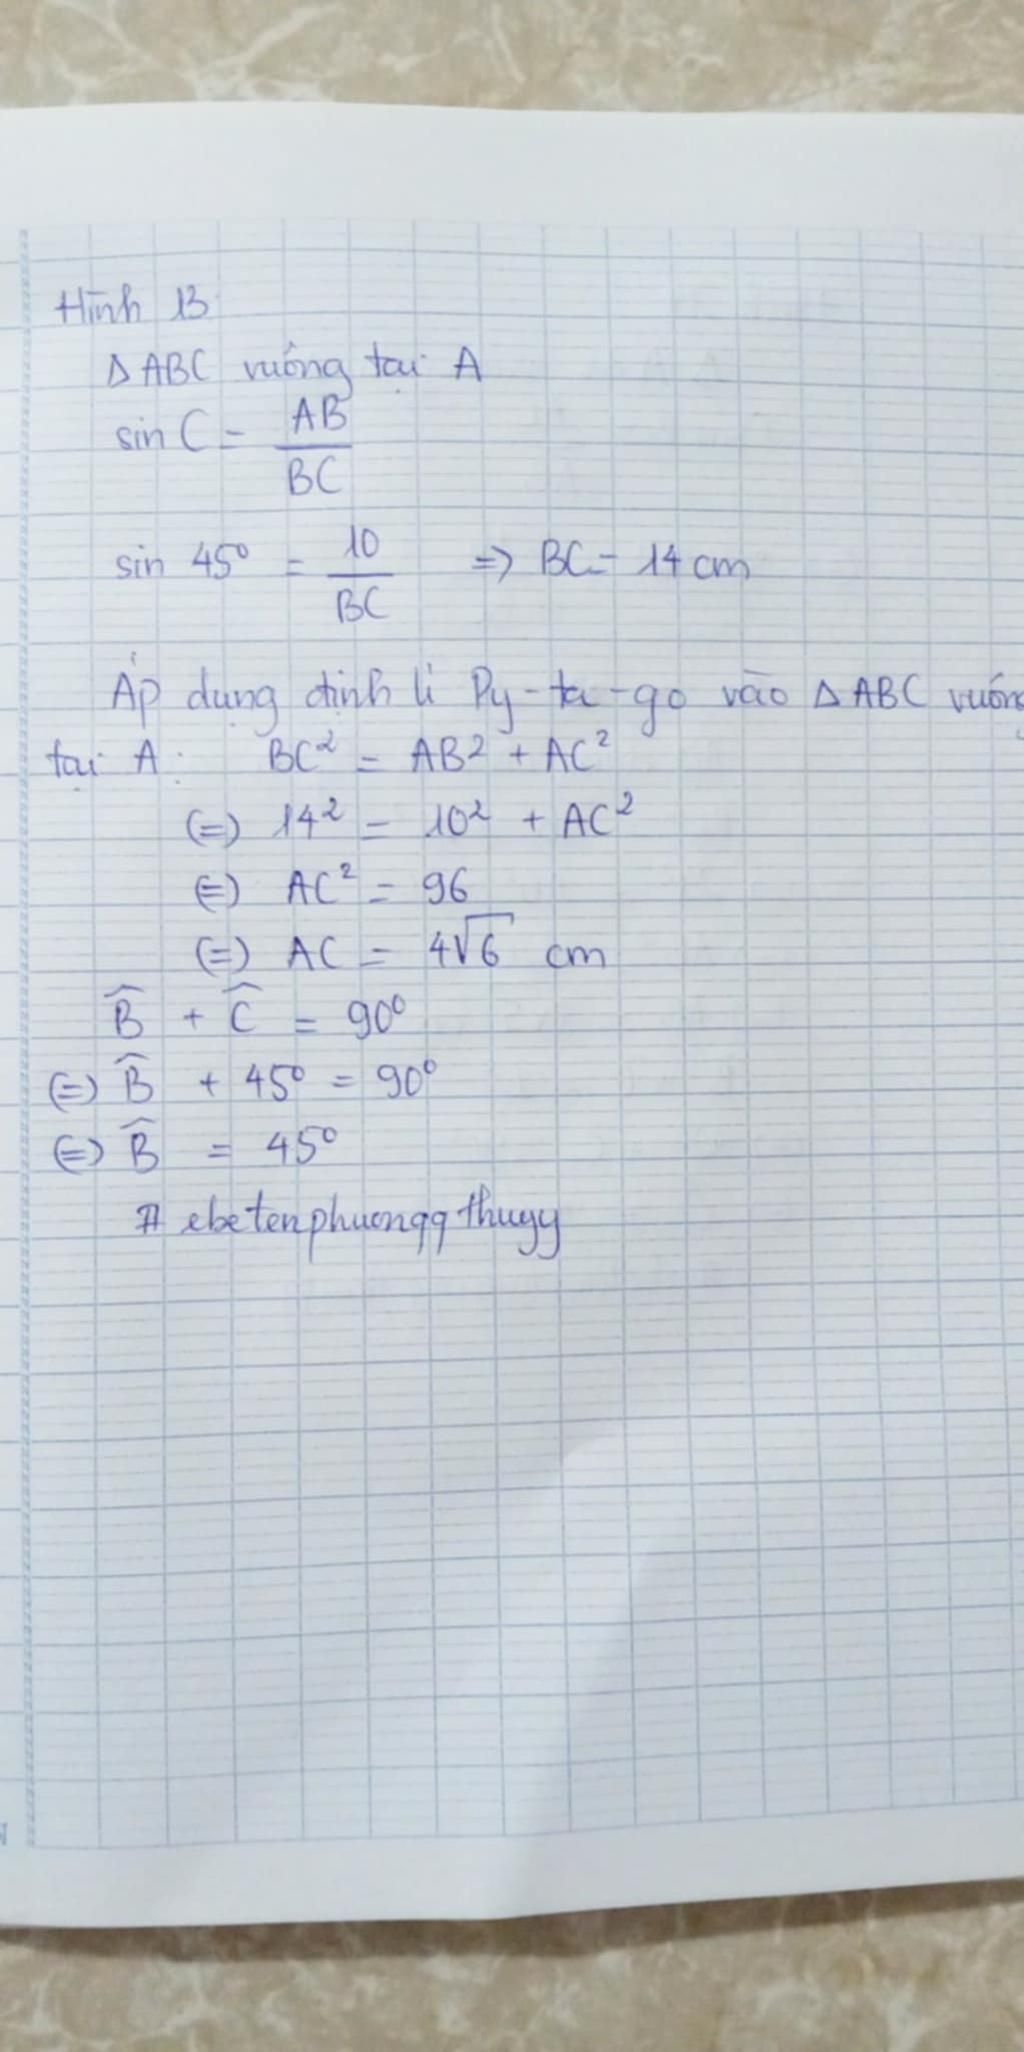 Hình 13
Δ ABC vuông tại A
sin C = AB / BC
sin 45° = 10 / BC => BC = 14 cm
Áp dụng định lí Py-ta-go vào Δ ABC vuông
tại A: BC² = AB² + AC²
(=) 14² = 10² + AC²
(=) AC² = 96
(=) AC = 4√6 cm
B̂ + Ĉ = 90°
(=) B̂ + 45° = 90°
(=) B̂ = 45°
# ebetenphuongqthuyy